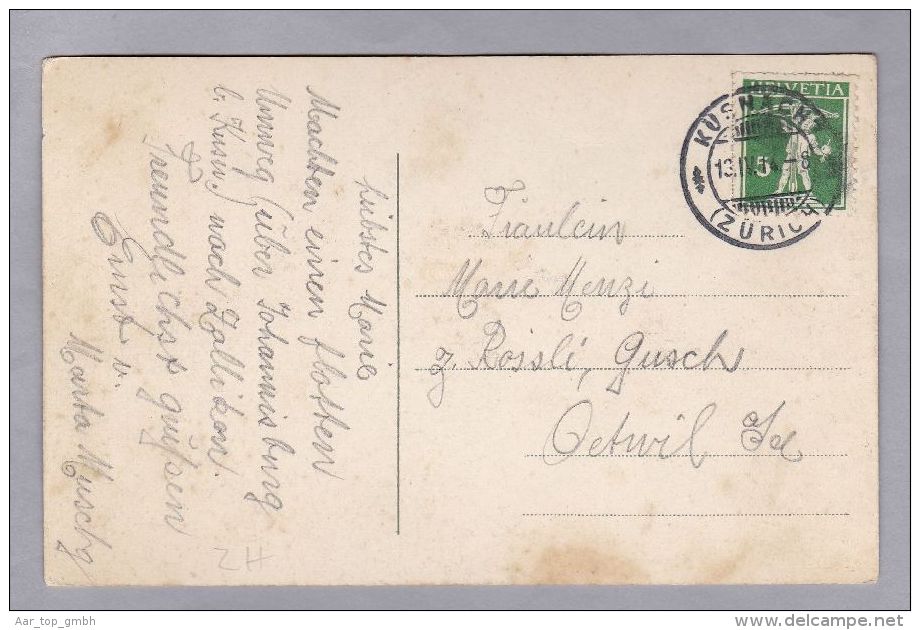 Liebstes Marie
Machten einen flotten
Umweg (über Johannisburg
b. Küsn.) nach Zollikon.
Freundlichst grüssen
Ernst u.
Marta Muschg
ZH
HELVETIA
5
KÜSNACHT
13.IV.14.-8
(ZÜRICH)
Fräulein
Marie Menzi
z. Rössli, Gusch
Oetwil a/See
delcampe.net
Aar_top_gmbh